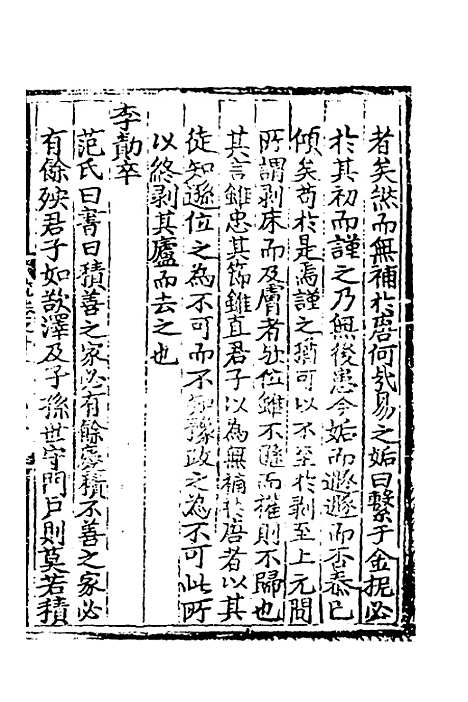 者矣然而無補於唐何哉易之姤曰繫于金抳必
於其初而謹之乃無後患今姤而遯遯而否泰已
傾矣苟於是焉謹之猶可以不至於剥至上元間
所謂剥床而及膚者欤位雖不隨而權則不歸也
其言雖忠其節雖直君子以為無補於唐者以其
徒知遜位之為不可而不知豫政之為不可此所
以終剥其廬而去之也
李勣卒
范氏曰書曰積善之家必有餘慶積不善之家必
有餘殃君子如欲澤及子孫世守門戶則莫若積